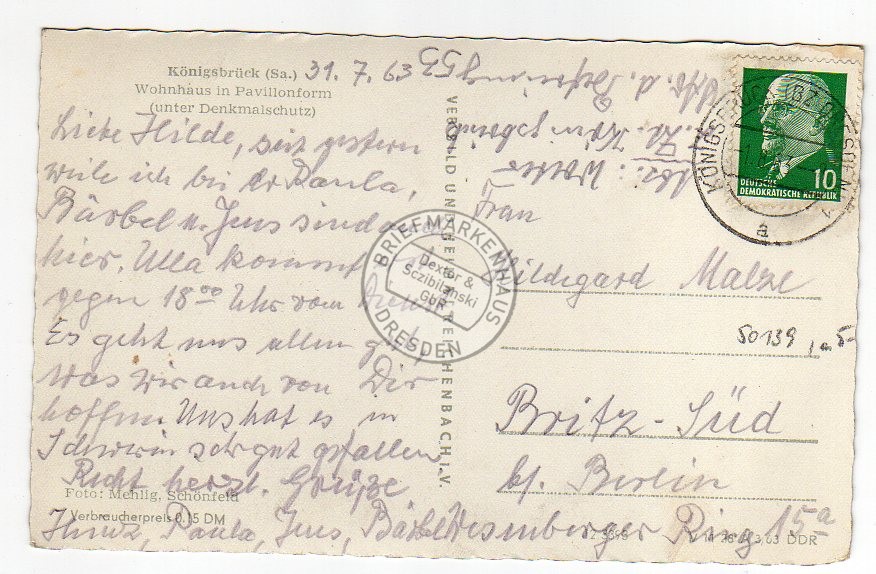 Königsbrück (Sa.) 31. 7. 63
Wohnhaus in Pavillonform
(unter Denkmalschutz)
Liebe Hilde, seit gestern
weile ich bei Paula,
Bärbel u. Jens sind
hier. Ulla kommt
gegen 18⁰⁰ Uhr vom
Es geht uns allen gut,
was wir auch von Dir
hoffen. Uns hat es in
Schwerin sehr gut gefallen
Recht herzl. Grüße
Foto: Mehlig, Schönfeld
Verbraucherpreis 0,15 DM
Heinz, Paula, Jens, Bärbel
VERBILD UND REICHENBACH i. V.
Abs.: Walter
z. Zt. Königsbrück
Frau
Hildegard Malze
50139
Britz-Süd
bf. Berlin
Wesenberger Ring 15ᵃ
3,63 DDR
KÖNIGSBRÜCK (BZ DRESDEN)
a
10
DEUTSCHE
DEMOKRATISCHE REPUBLIK
BRIEFMARKENHAUS
Dextor &
Sczibilanski
GbR
DRESDEN